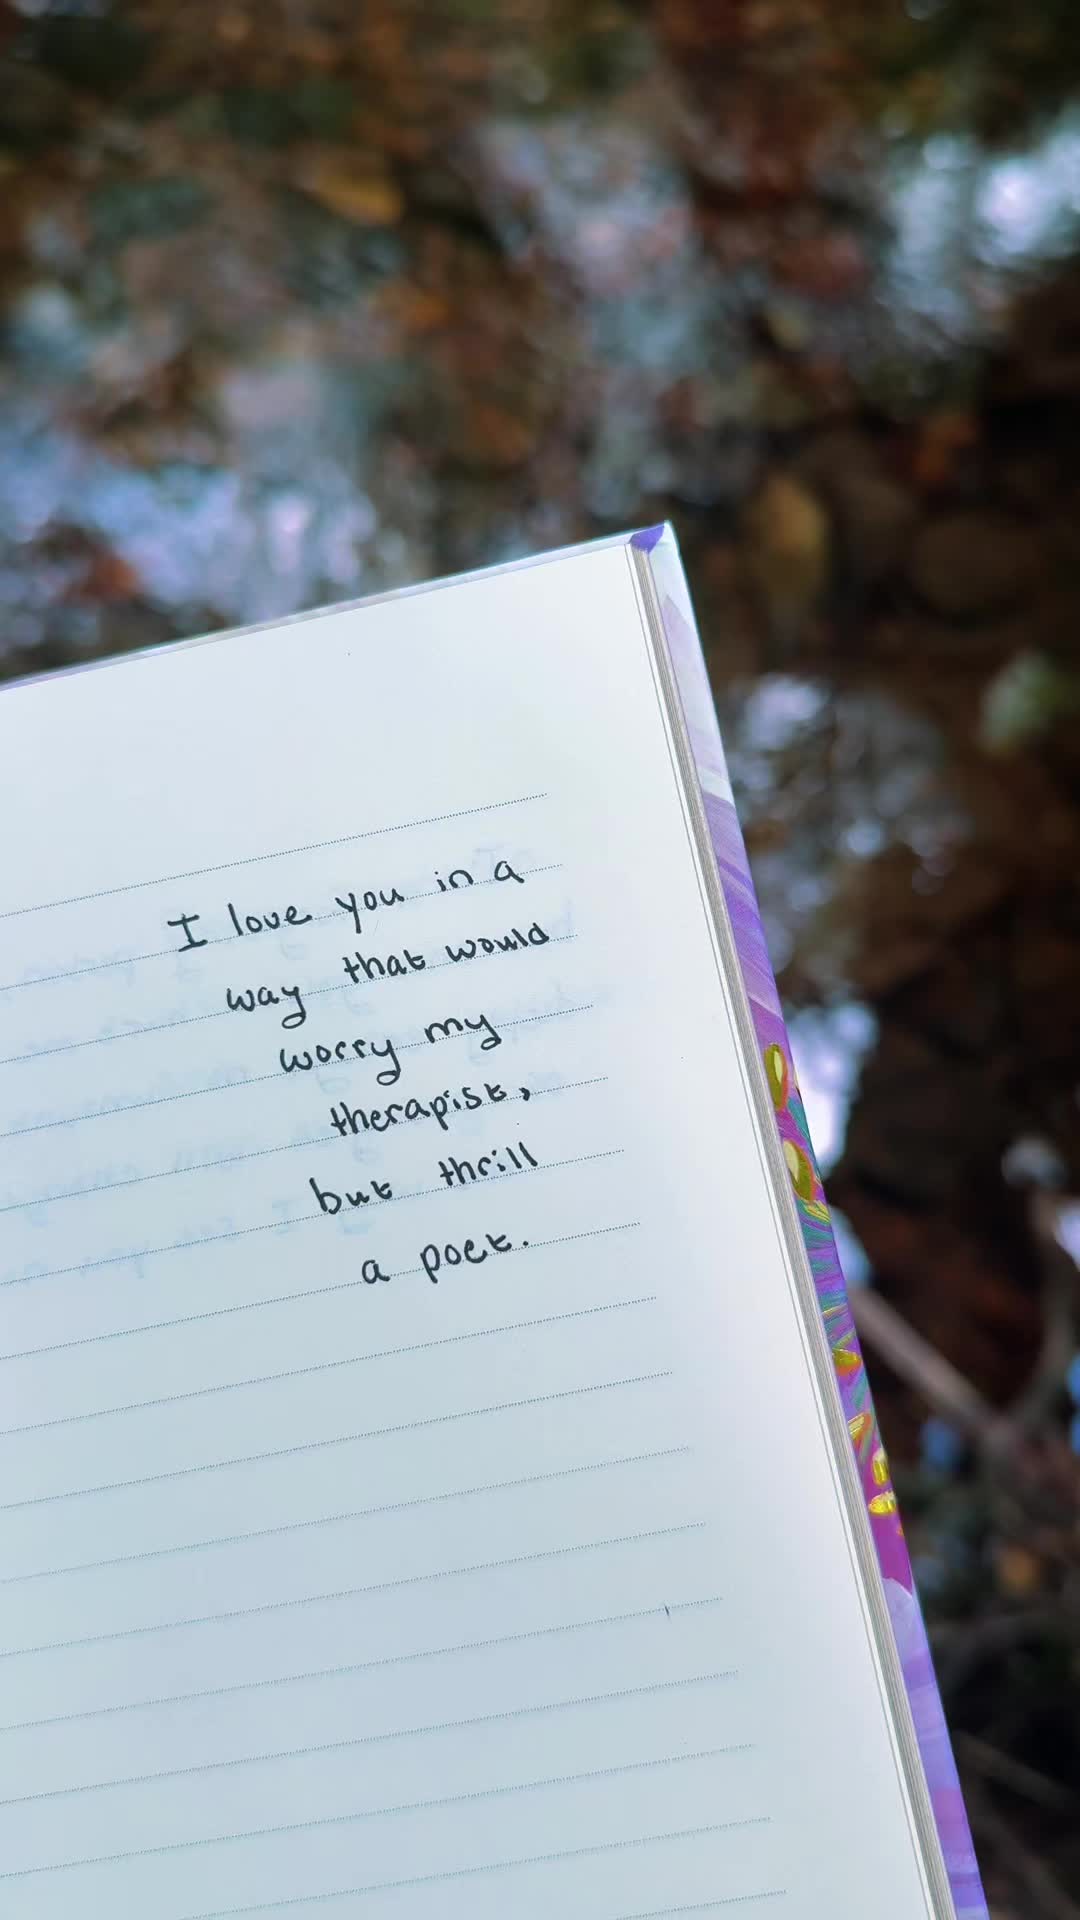 I love you in a
way that would
worry my
therapist,
but thrill
a poet.